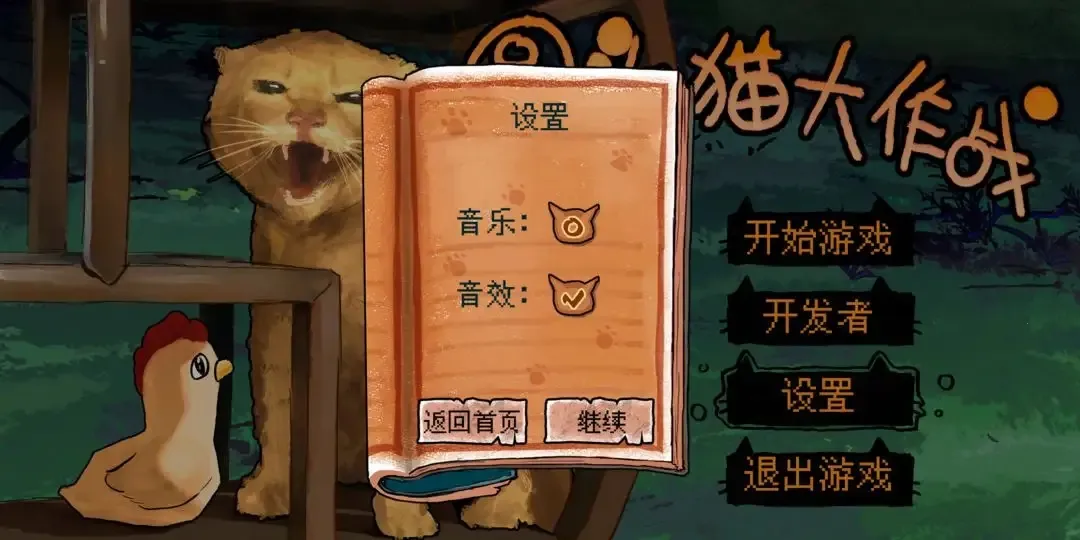 猫大作战
设置
音乐:
音效:
返回首页
继续
开始游戏
开发者
设置
退出游戏